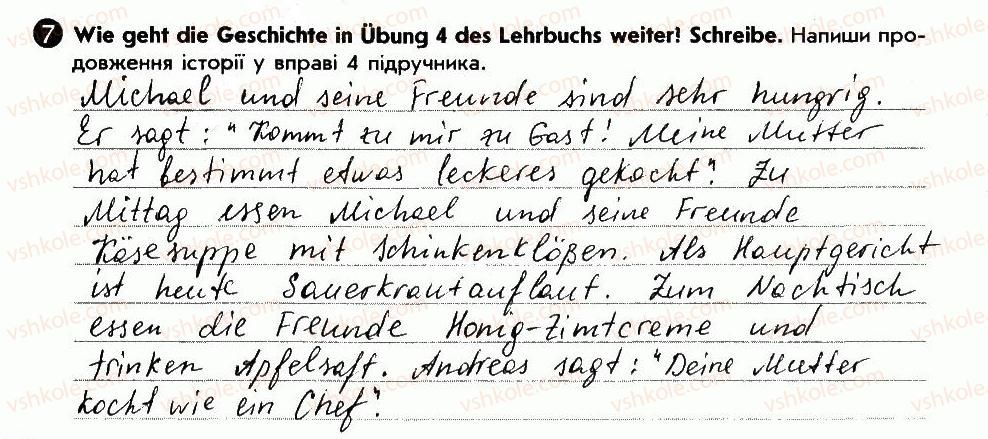 7 Wie geht die Geschichte in Übung 4 des Lehrbuchs weiter! Schreibe. Напиши про-
довження історії у вправі 4 підручника.
Michael und seine Freunde sind sehr hungrig.
Er sagt: "Kommt zu mir zu Gast! Meine Mutter
hat bestimmt etwas leckeres gekocht". Zu
Mittag essen Michael und seine Freunde
Käsesuppe mit Schinkenklößen. Als Hauptgericht
ist heute Sauerkrautauflauf. Zum Nachtisch
essen die Freunde Honig-Zimtcreme und
trinken Apfelsaft. Andreas sagt: "Deine Mutter
kocht wie ein Chef".